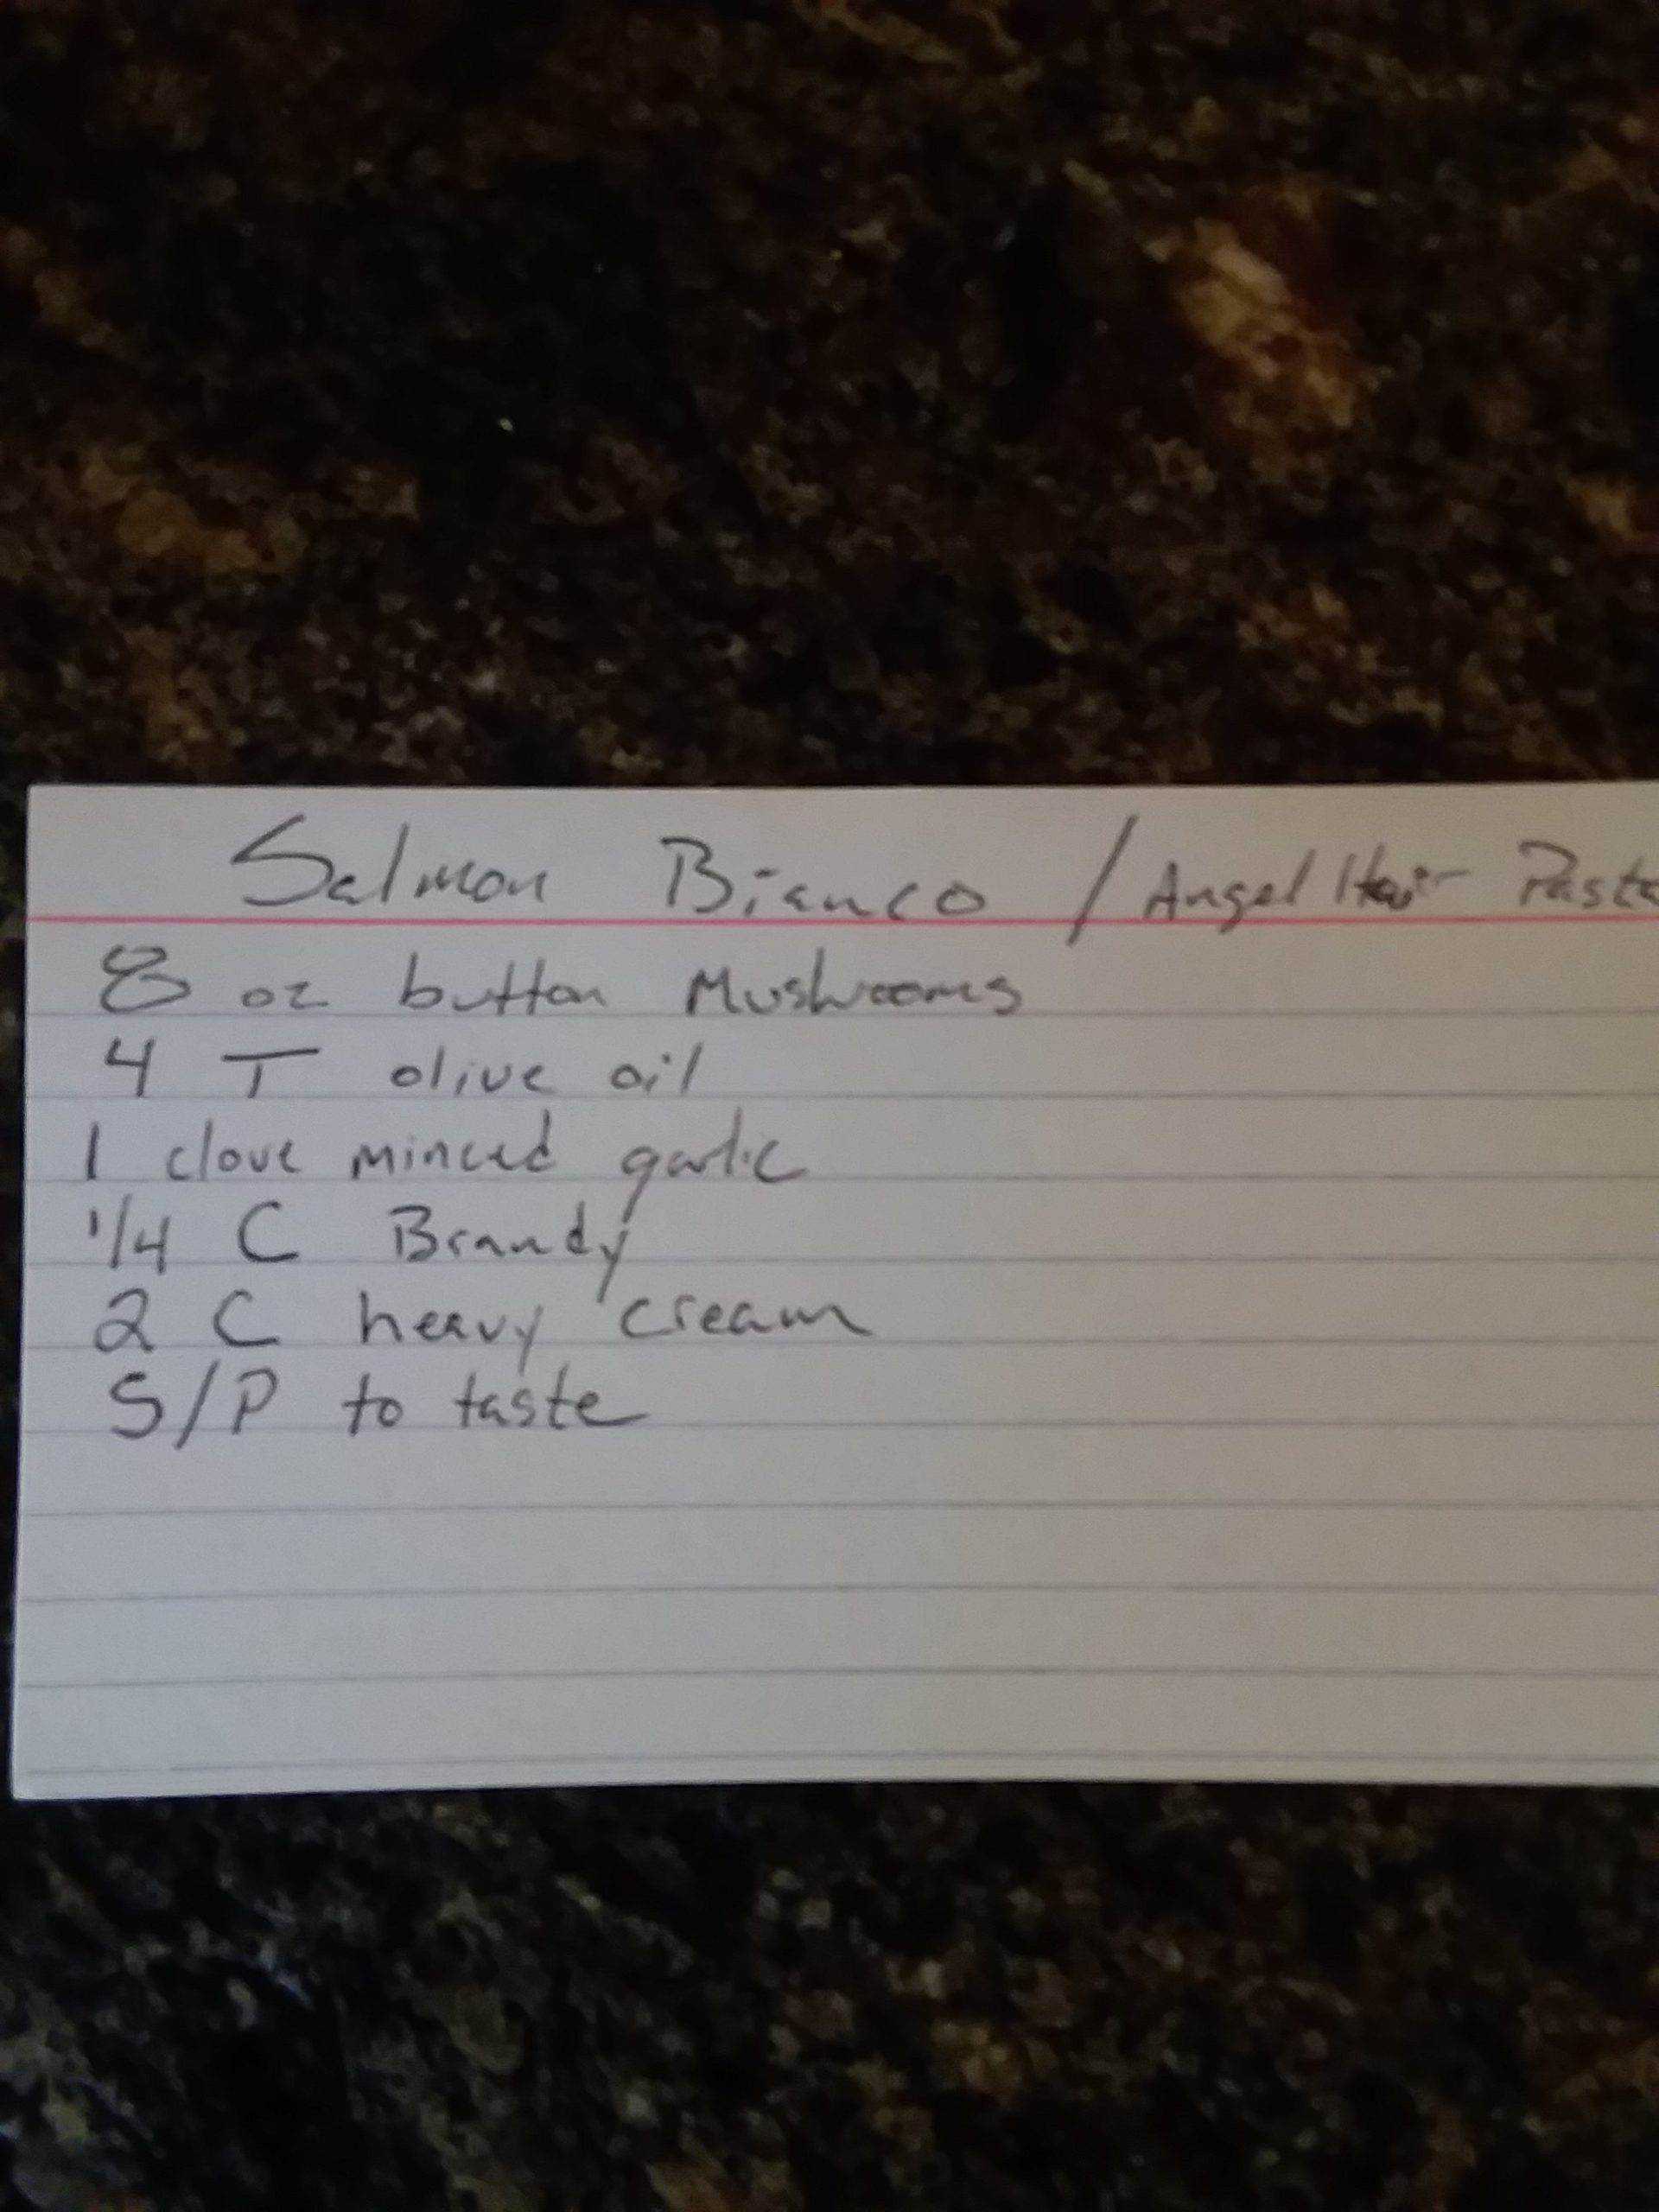 Salmon Bianco / Angel Hair Pasta
8 oz button Mushrooms
4 T olive oil
1 clove minced garlic
1/4 C Brandy
2 C heavy cream
S/P to taste